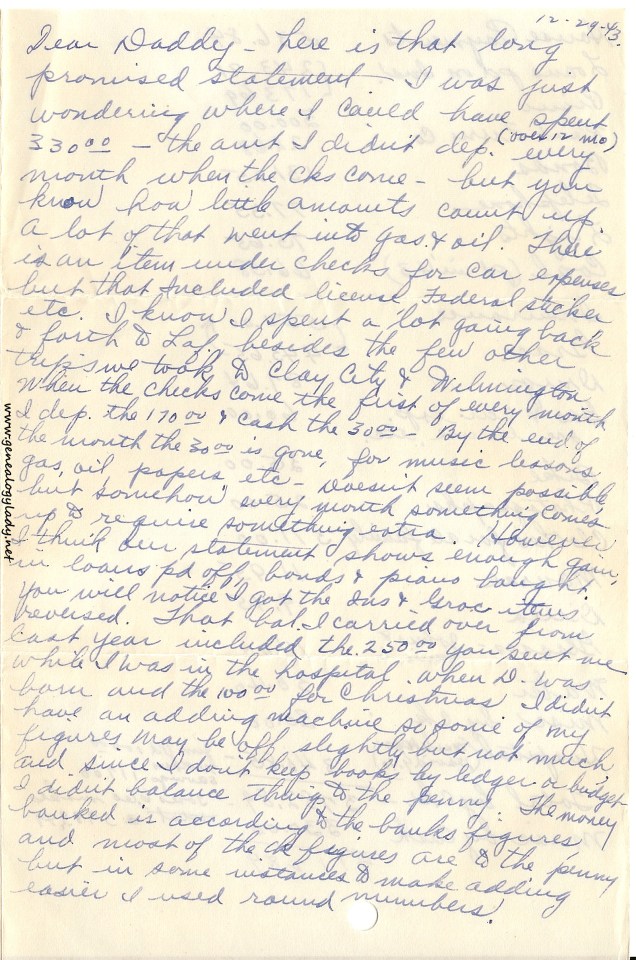 12-29-43.
Dear Daddy - here is that long
promised statement - I was just
wondering where I could have spent
330.00 - the amt I didn't dep. (over 12 mo) every
month when the cks come - but you
know how little amounts count up.
A lot of that went into gas & oil. There
is an item under checks for car expenses
but that included license, Federal sticker
etc. I know I spent a lot going back
& forth to Laf. besides the few other
trips we took to Clay City & Wilmington.
When the checks come the first of every month
I dep. the 170.00 & cash the 30.00 - By the end of
the month the 30.00 is gone, for music lessons,
gas, oil, papers, etc - Doesn't seem possible
but somehow every month something comes
up to require something extra. However
I think our statement shows enough gain,
in loans pd off, bonds & piano bought.
You will notice I got the Ins & Groc items
reversed. That bal. I carried over from
last year included the 250.00 you sent me
while I was in the hospital when D. was
born and the 100.00 for Christmas. I didn't
have an adding machine so some of my
figures may be off slightly but not much,
and since I don't keep books by ledger or budget
I didn't balance things to the penny. The money
banked is according to the banks figures
and most of the ck figures are to the penny
but in some instances to make adding
easier I used round numbers.
www.genealogylady.net